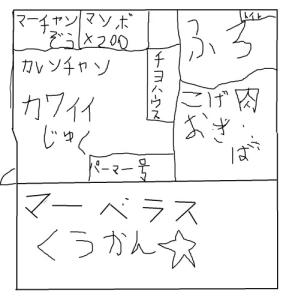 マーチャン
ぞう
マンボ
×200
ふろ
トイレ
カレンチャン
カワイイ
じゅく
チヨハウス
こげ肉
おき・
ば
パーマー号
マーベラス
くうかん☆